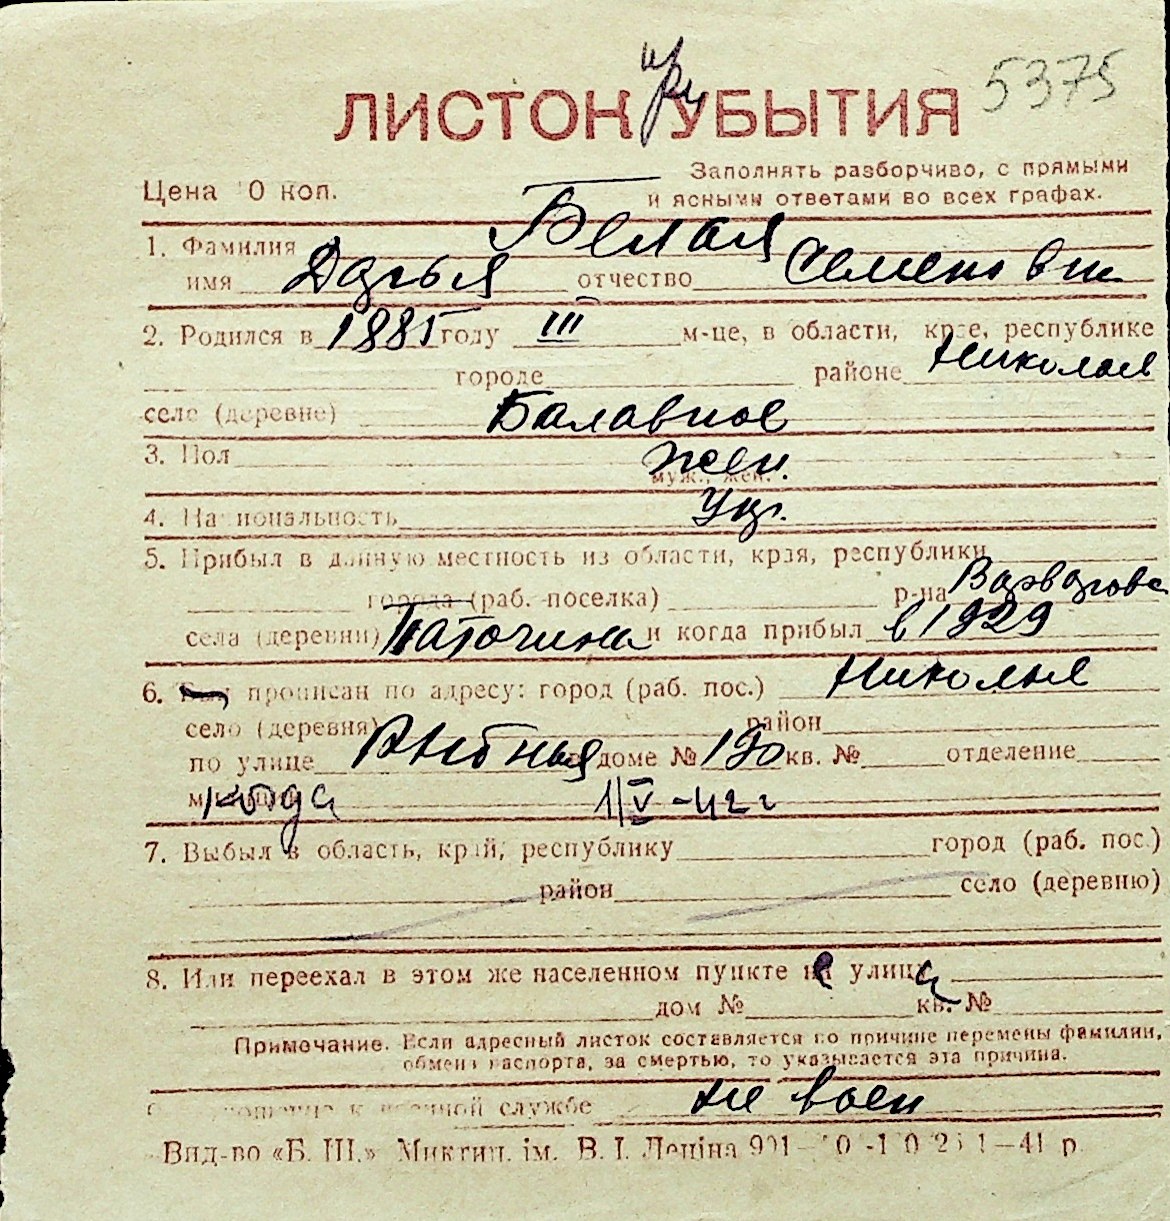 при
5375
ЛИСТОК УБЫТИЯ
Заполнять разборчиво, с прямыми
Цена 10 коп. и ясными ответами во всех графах.
1. Фамилия Белая
имя Дарья отчество Семеновн
2. Родился в 1885 году III м-це, в области, крае, республике
городе районе Николаев
селе (деревне) Балавное
3. Пол жен.
муж., жен.
4. Национальность Укр.
5. Прибыл в данную местность из области, края, республики
города (раб. поселка) р-на Варваровс
села (деревни) и когда прибыл в 1929
6. прописан по адресу: город (раб. пос.) Николаев
село (деревня) район
по улице Рыбная в доме № 190 кв. № отделение
когда 1/V-42 г
7. Выбыл в область, край, республику город (раб. пос.)
район село (деревню)
8. Или переехал в этом же населенном пункте на улица
дом № кв. №
Примечание. Если адресный листок составляется по причине перемены фамилии,
обмена паспорта, за смертью, то указывается эта причина.
отношение к военной службе не воен
Вид-во «Б. Ш.» Миктип. ім. В. І. Леніна